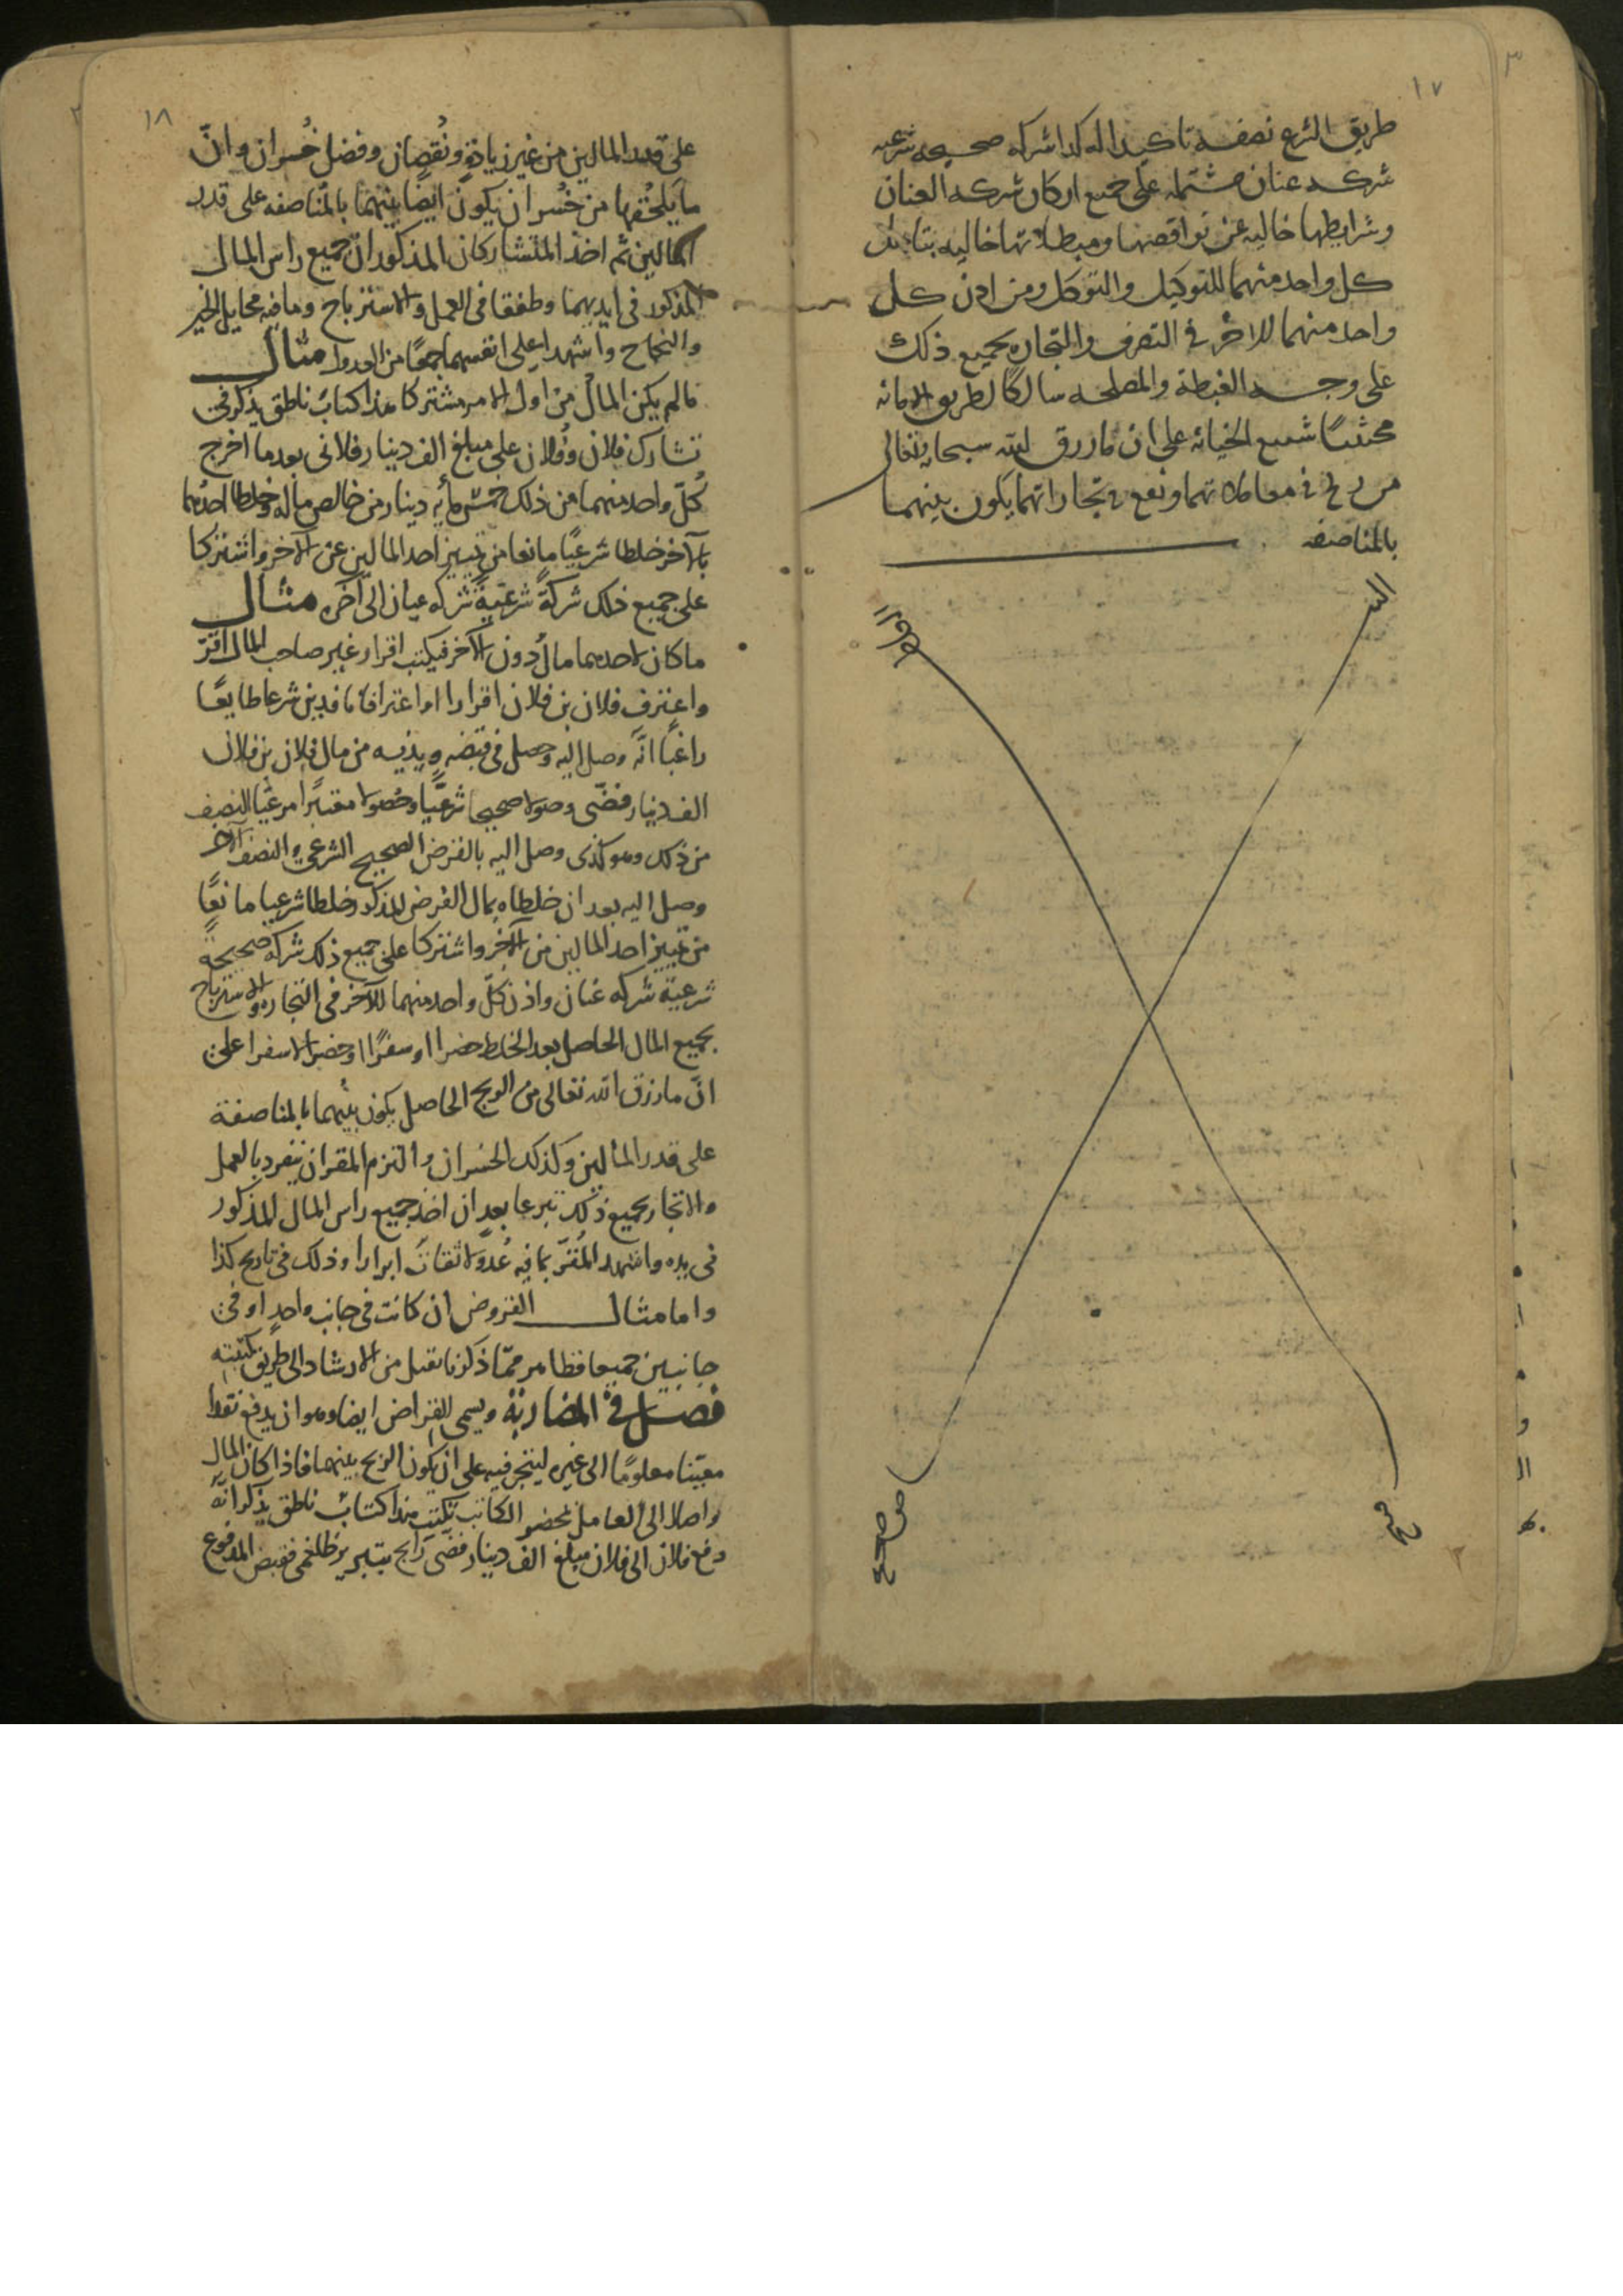 ١٧
طريق الشرع نصفه تاكيدا له كذا شركه صحيحه شرعيه
شركه عنان مشتمله على جميع اركان شركه العنان
وشرايطها خاليه عن نواقصها ومبطلاتها خاليه
كل واحد منهما للتوكيل والتوكل ومن اذن كل
واحد منهما للاخر في التصرف والتجاره بجميع ذلك
على وجه الغبطة والمصلحه سالكا لطريق الامانه
الخيانه على ان ما رزق الله سبحانه وتعالى
من ربح في معاملاتهما ونفع في تجاراتهما يكون بينهما
بالمناصفه
١٨
على قدر المالين من غير زيادة ونقصان وفضل خسران وانّ
ما يلحقها من خسران يكون ايضا بينهما بالمناصفه على قدر
المالين ثم اخذ المتشاركان المذكوران جميع راس المال
المذكور في ايديهما وطفقا في العمل والاسترباح وما فيه مخايل الخير
والنجاح واشهدا على انفسهما جمعًا من العدول مثال
مالم يكن المال من اول الامر مشتركا هذا كتاب ناطق يذكر في
تشارك فلان وفلان على مبلغ الف دينار فلانى بعد ما اخرج
كل واحد منهما من ذلك خمس مأيه دينار من خالص ماله وخلطا احدهما
بالآخر خلطا شرعيًا مانعا من تمييز احد المالين عن الآخر واشتركا
على جميع ذلك شركةً شرعيةً شركه عنان الى آخره مثال
ما كان لاحدهما مال دون الآخر فيكتب اقرار غير صاحب المال اقرّ
واعترف فلان بن فلان اقرارا واعترافا نافذين شرعا طايعًا
راغبًا انّه وصل اليه وحصل في قبضه ويديه من مال فلان بن فلان
الف دينار فضّى وصولا صحيحا شرعيًّا وحصولا معتبرًا مرعيًا النصف
من ذلك وهو كذى وصل اليه بالقرض الصحيح الشرعي والنصف الآخر
وصل اليه بعد ان خلطاه بمال القرض المذكور خلطا شرعيا مانعًا
من تمييز احد المالين من الآخر واشتركا على جميع ذلك شركه صحيحة
شرعية شركه عنان واذن كلّ واحد منهما للآخر في التجاره والاسترباح
بجميع المال الحاصل بعد الخلط حضرا او سفرًا او حضرا لا سفرا على
انّ ما رزق الله تعالى من الربح الحاصل يكون بينهما بالمناصفة
على قدر المالين وكذلك الخسران والتزم المقر ان يتفرد بالعمل
والاتجار بجميع ذلك تبرعا بعد ان اخذ جميع راس المال المذكور
في يده واشهد المُقرّ بما فيه عُدولا ثقات ابرارا وذلك في تاريخ كذا
واما مثال القروض ان كانت في جانب واحد او في
جانبين جميعا فظاهر ممّا ذكرنا قبل من الارشاد الى طريق كتبته
فصل في المضاربة ويسمى القراض ايضا وهو ان يدفع نقدا
معيّنا معلومًا الى غيره ليتجر فيه على ان يكون الربح بينهما فاذا كان المال
واصلا الى العامل بمحضر الكاتب تكتب هذا كتاب ناطق بذكر انّه
دفع فلان الى فلان مبلغ الف دينار فضّى رايج بتبريز فقبض المدفوع